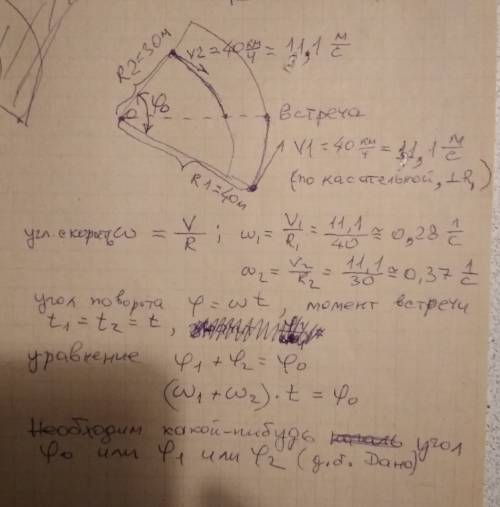 R2=30м
V2=40 км/ч = 11,1 м/с
φ₀
O
встреча
V1=40 км/ч = 11,1 м/с
(по касательной, ⊥R₁)
R1=40м
угл. скорость ω = V/R ; ω₁ = V₁/R₁ = 11,1/40 ≅ 0,28 1/с
ω₂ = V₂/R₂ = 11,1/30 ≅ 0,37 1/с
угол поворота φ = ωt, момент встречи
t₁ = t₂ = t,
уравнение φ₁ + φ₂ = φ₀
(ω₁ + ω₂)·t = φ₀
Необходим какой-нибудь угол
φ₀ или φ₁ или φ₂ (д.б. Дано)